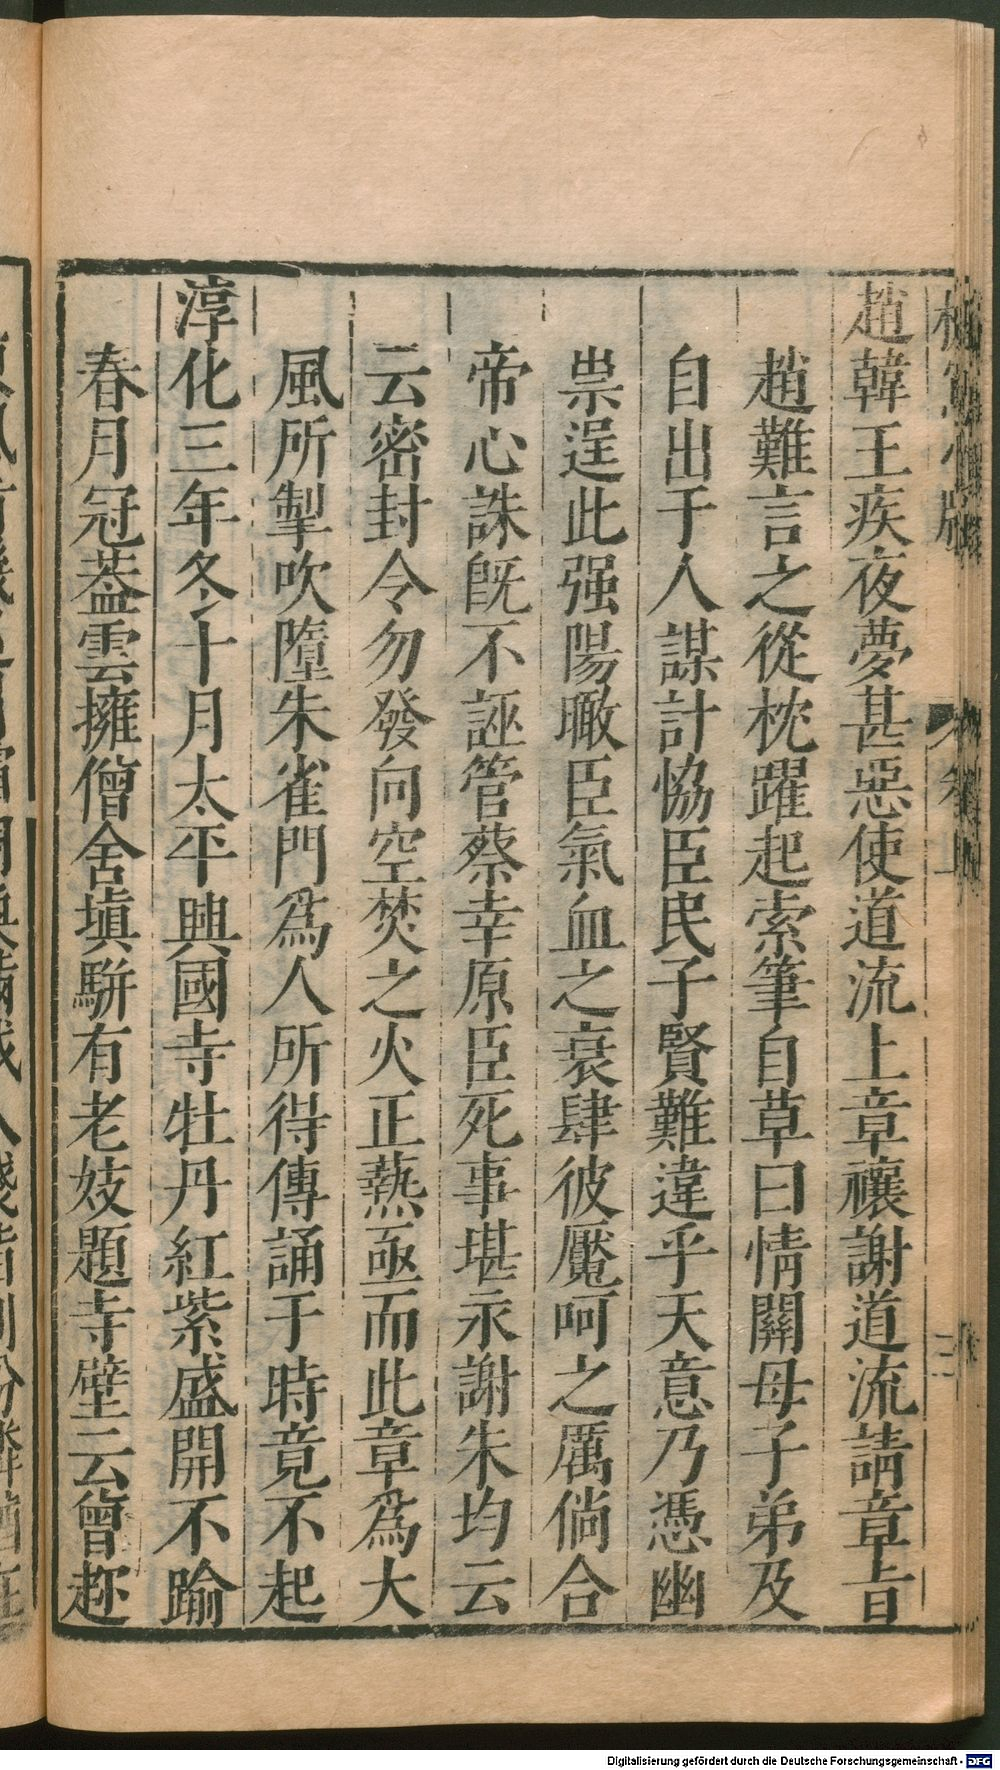 趙韓王疾夜夢甚惡使道流上章禳謝道流請章旨
趙難言之從枕躍起索筆自草曰情關母子弟及
自出于人謀計恊臣民子賢難違乎天意乃憑幽
祟逞此强陽瞰臣氣血之衰肆彼魘呵之厲倘合
帝心誅既不誣管蔡幸原臣死事堪永謝朱均云
云密封令勿發向空焚之火正爇函而此章爲大
風所掣吹墮朱雀門爲人所得傳誦于時竟不起
淳化三年冬十月太平興國寺牡丹紅紫盛開不踰
春月冠葢雲擁僧舍塡駢有老妓題寺壁云曾趂
Digitalisierung gefördert durch die Deutsche Forschungsgemeinschaft - DFG